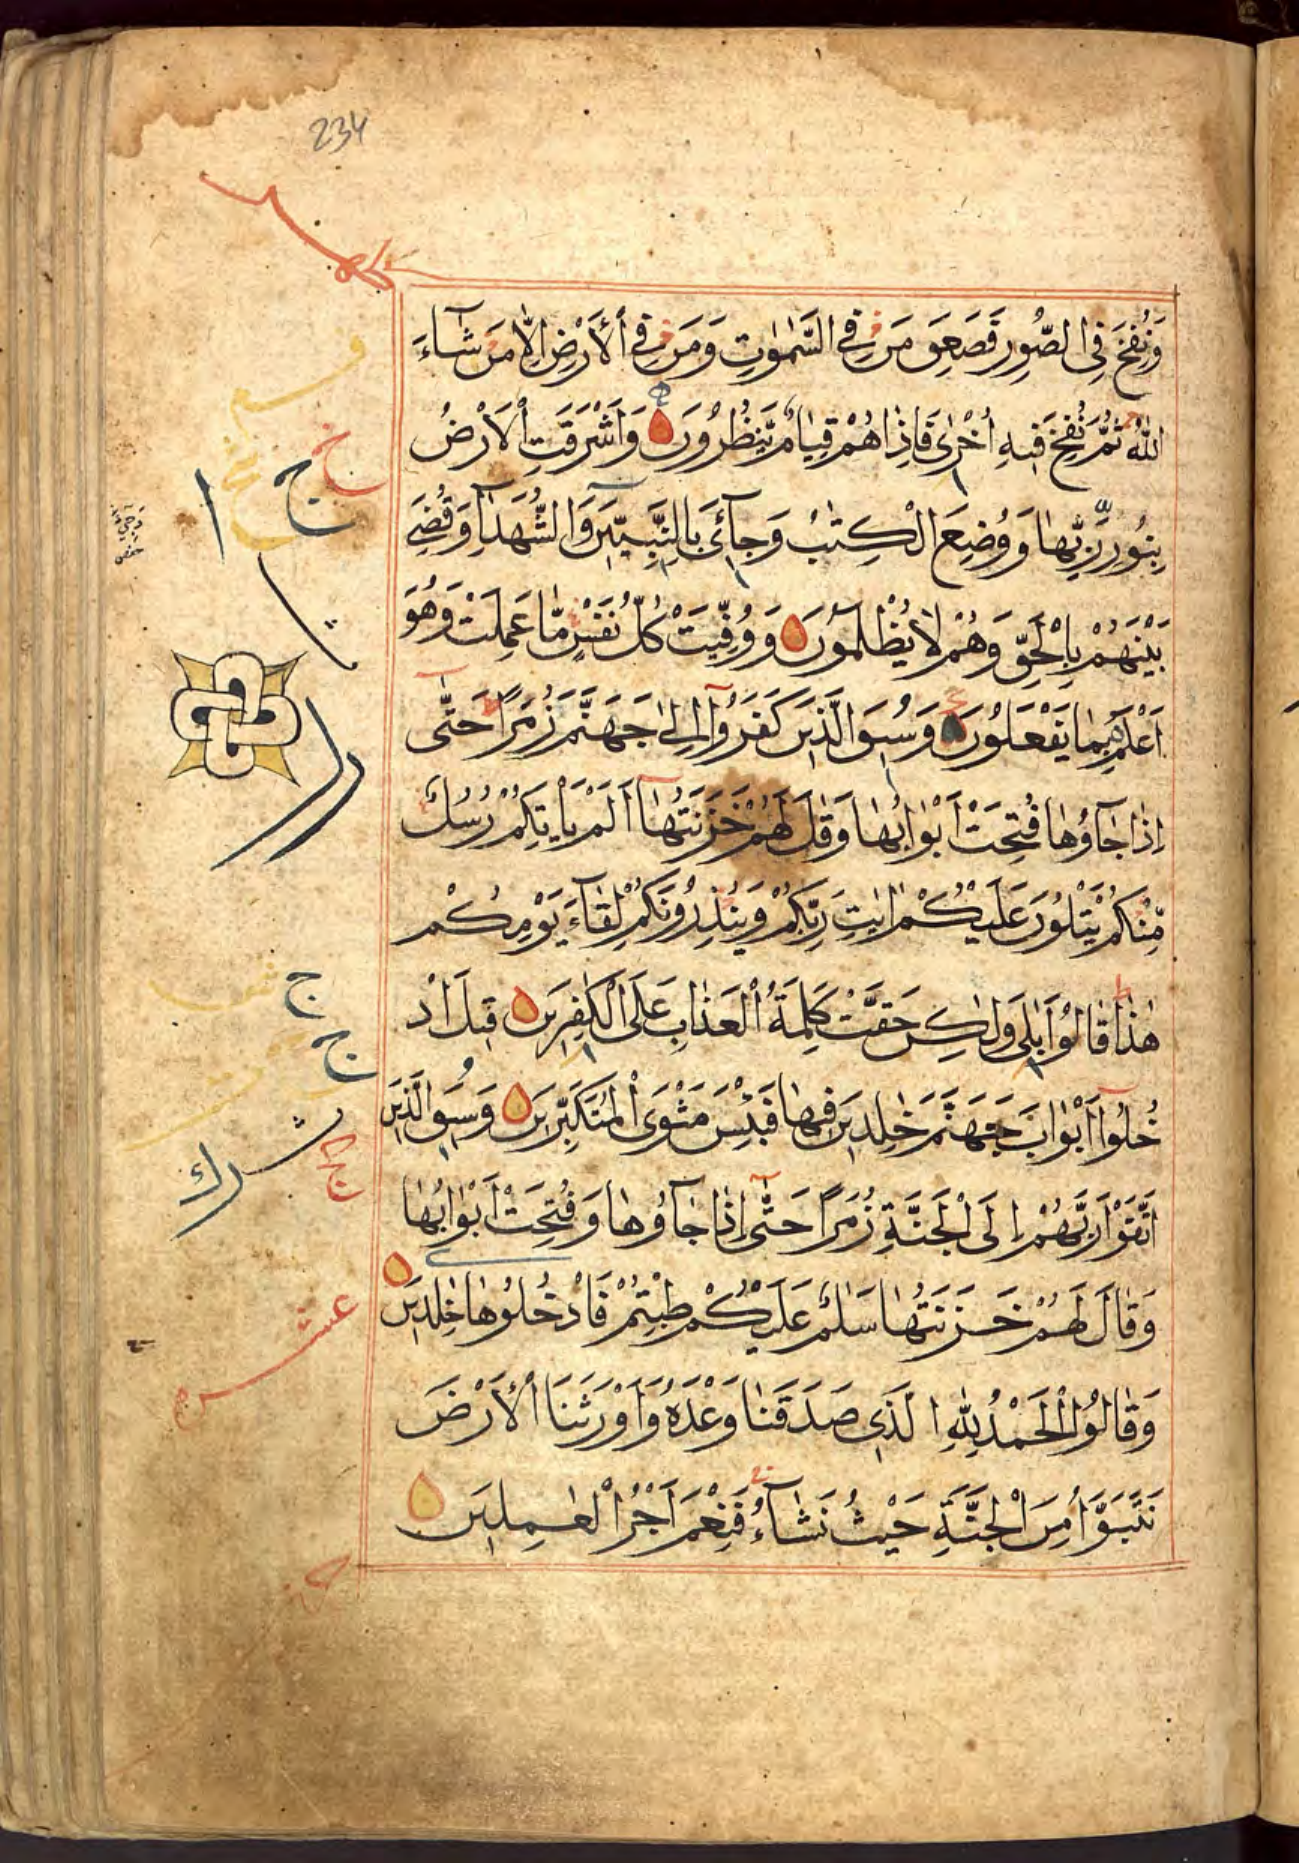 234
وَنُفِخَ فِي الصُّورِ فَصَعِقَ مَن فِي السَّمٰوٰتِ وَمَن فِي الْأَرْضِ اِلَّا مَن شَاءَ
اللّٰهُ ثُمَّ نُفِخَ فِيهِ اُخْرٰى فَاِذَا هُمْ قِيَامٌ يَّنظُرُونَ وَاَشْرَقَتِ الْاَرْضُ
بِنُورِ رَبِّهَا وَوُضِعَ الْكِتٰبُ وَجِآئَ بِالنَّبِيِّينَ وَالشُّهَدَآءِ وَقُضِيَ
بَيْنَهُمْ بِالْحَقِّ وَهُمْ لَا يُظْلَمُونَ وَوُفِّيَتْ كُلُّ نَفْسٍ مَّا عَمِلَتْ وَهُوَ
اَعْلَمُ بِمَا يَفْعَلُونَ وَسِيقَ الَّذِينَ كَفَرُوٓا اِلٰى جَهَنَّمَ زُمَرًا حَتّٰٓى
اِذَا جَآؤُهَا فُتِحَتْ اَبْوَابُهَا وَقَالَ لَهُمْ خَزَنَتُهَآ اَلَمْ يَأْتِكُمْ رُسُلٌ
مِّنْكُمْ يَتْلُونَ عَلَيْكُمْ اٰيٰتِ رَبِّكُمْ وَيُنْذِرُونَكُمْ لِقَآءَ يَوْمِكُمْ
هٰذَا قَالُوا بَلٰى وَلٰكِنْ حَقَّتْ كَلِمَةُ الْعَذَابِ عَلَى الْكٰفِرِينَ قِيلَ ادْ
خُلُوٓا اَبْوَابَ جَهَنَّمَ خٰلِدِينَ فِيهَا فَبِئْسَ مَثْوَى الْمُتَكَبِّرِينَ وَسِيقَ الَّذِينَ
اتَّقَوْا رَبَّهُمْ اِلَى الْجَنَّةِ زُمَرًا حَتّٰٓى اِذَا جَآؤُهَا وَفُتِحَتْ اَبْوَابُهَا
وَقَالَ لَهُمْ خَزَنَتُهَا سَلٰمٌ عَلَيْكُمْ طِبْتُمْ فَادْخُلُوهَا خٰلِدِينَ
وَقَالُوا الْحَمْدُ لِلّٰهِ الَّذِي صَدَقَنَا وَعْدَهُ وَاَوْرَثَنَا الْاَرْضَ
نَتَبَوَّاُ مِنَ الْجَنَّةِ حَيْثُ نَشَآءُ فَنِعْمَ اَجْرُ الْعٰمِلِينَ
ج
ج
ج
عشر